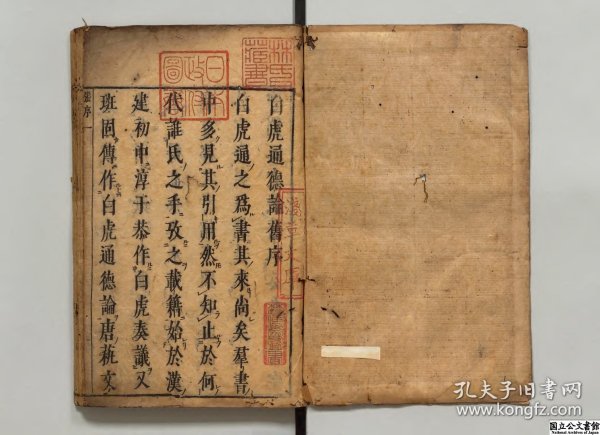 白虎通德論舊序
白虎通之為書其來尚矣羣書
中多見其引用然不知止於何
代誰氏之手攷之載籍始於漢
建初中淳于恭作白虎奏議又
班固傳作白虎通德論唐藝文
舊序 一
林氏藏書
日本政府圖書
淺草文庫
孔夫子旧书网
www.kongfz.com
国立公文書館
National Archives of Japan